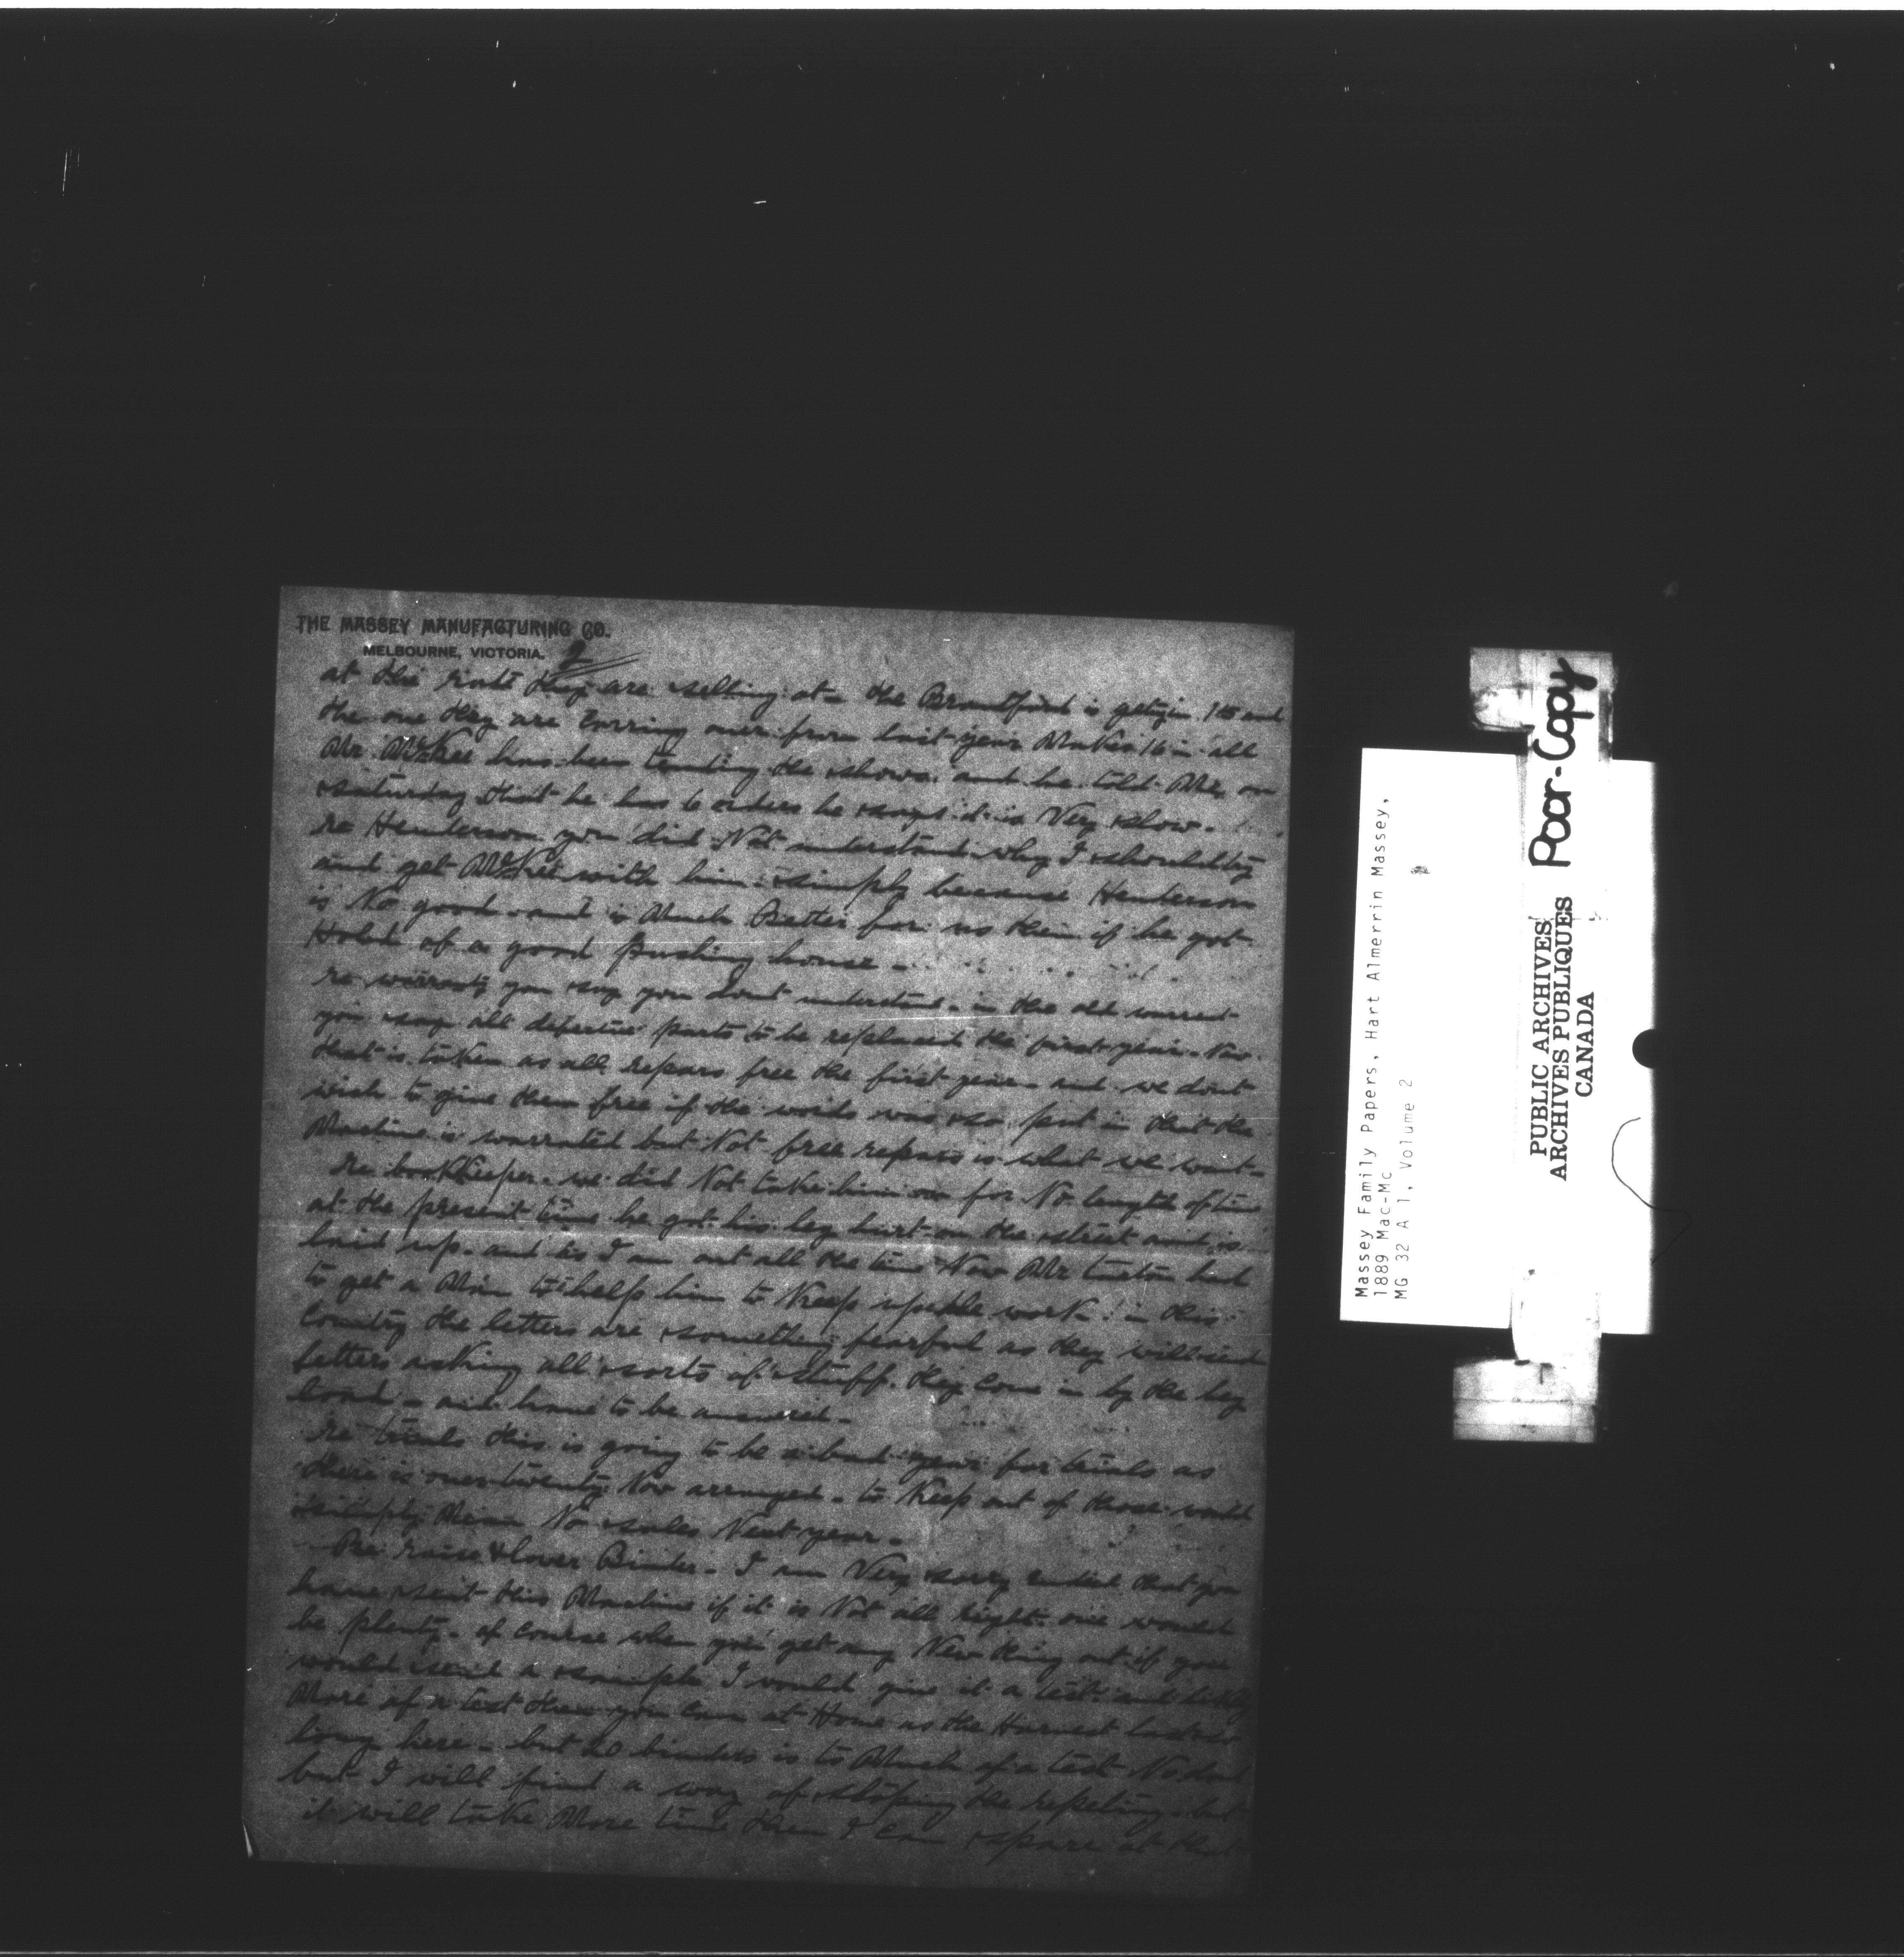 THE MASSEY MANUFACTURING CO.
MELBOURNE, VICTORIA. 2
at this they are selling at - the Brantford is getting 15 and
the one they are over from last year Makes 16 in all
Mr McKee has been tending the shows and he told Me on
saturday that he has 6 orders he says it is Very slow -
re Henderson you did Not understand why I should try
and get McKee with him simply because Henderson
is No good - and is Much Better for us then if he got
Hold of a good pushing house -
re warranty you say you dont understand - in the old warrant
you say all defective parts to be replaced the first year - Now
that is taken as all repairs free the first year - and we dont
wish to give them free if the words was so put in that the
Machine is warranted but Not free repairs is what we want -
re bookkeeper - we did Not take him on for No length of time
at the present time he got his leg hurt on the street and is
laid up - and as I am out all the time Now Mr had
to get a Man to help him to Keep up the work in this
Country the letters are something fearful as they will send
letters asking all sorts of stuff. they come in by the
load - and have to be answered -
re trials this is going to be a bad year for trials as
there is over twenty Now arranged - to Keep out of these would
simply Mean No sales Next year -
Re raise & lower Binder - I am Very sorry indeed that you
have sent this Machine if it is Not all right - one would
be plenty - of course when you get any New thing out if you
would send a sample I would give it a test and
More of a test then you can at Home as the Harvest lasts so
long here - but 20 binders is to Much of a test No
but I will find a way of stoping the - but
it will take More time then I can spare at the
Poor-Copy
PUBLIC ARCHIVES
ARCHIVES PUBLIQUES
CANADA
Massey Family Papers, Hart Almerrin Massey,
1889 Mac-Mc
MG 32 A 1, Volume 2